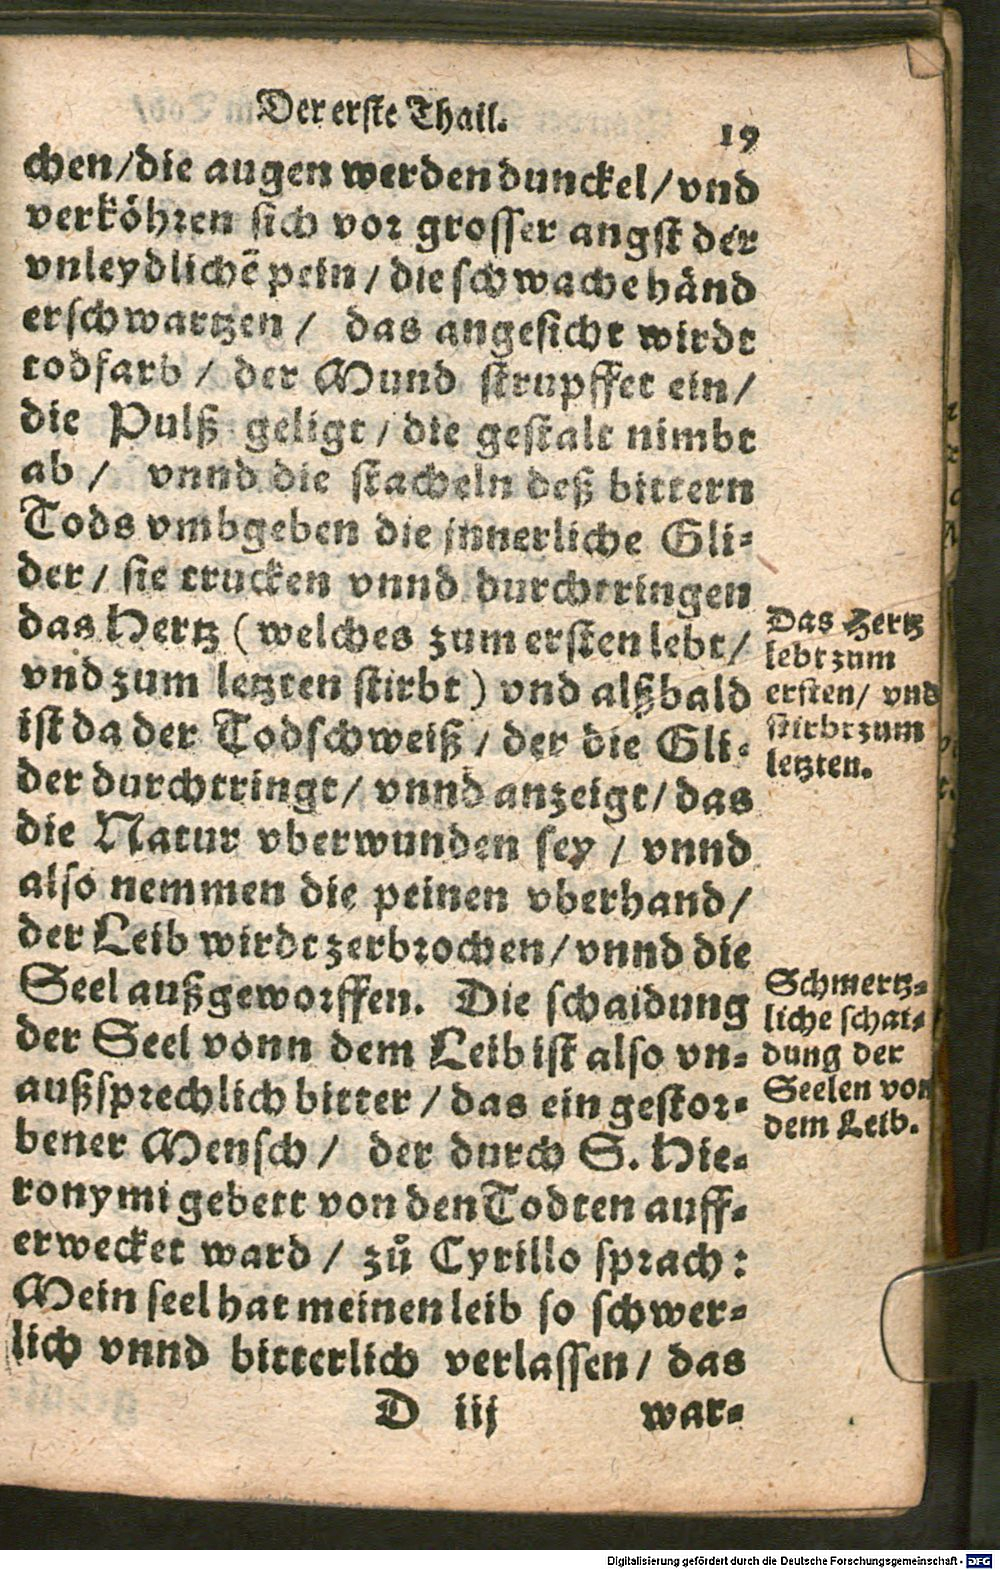 Der erste Thail.
19
chen/die augen werden dunckel/vnd
verköhren sich vor grosser angst der
vnleydlichẽ pein/die schwache händ
erschwartzen/ das angesicht wirdt
todfarb/ der Mund strupffet ein/
die Pulß geligt/die gestalt nimbt
ab/ vnnd die stacheln deß bittern
Tods vmbgeben die jnnerliche Gli-
der/sie trucken vnnd durchtringen
das Hertz (welches zum ersten lebt/
vnd zum letzten stirbt) vnd alßbald
ist da der Todschweiß/der die Gli-
der durchtringt/vnnd anzeigt/das
die Natur vberwunden sey/vnnd
also nemmen die peinen vberhand/
der Leib wirdt zerbrochen/vnnd die
Seel außgeworffen. Die schaidung
der Seel vonn dem Leib ist also vn-
außsprechlich bitter/das ein gestor-
bener Mensch/ der durch S. Hie-
ronymi gebett von den Todten auff-
erwecket ward/ zů Cyrillo sprach:
Mein seel hat meinen leib so schwer-
lich vnnd bitterlich verlassen/ das
D iij war-
Das Hertz
lebt zum
ersten/ vnd
stirbt zum
letzten.
Schmertz-
liche schai-
dung der
Seelen von
dem Leib.
Digitalisierung gefördert durch die Deutsche Forschungsgemeinschaft - DFG